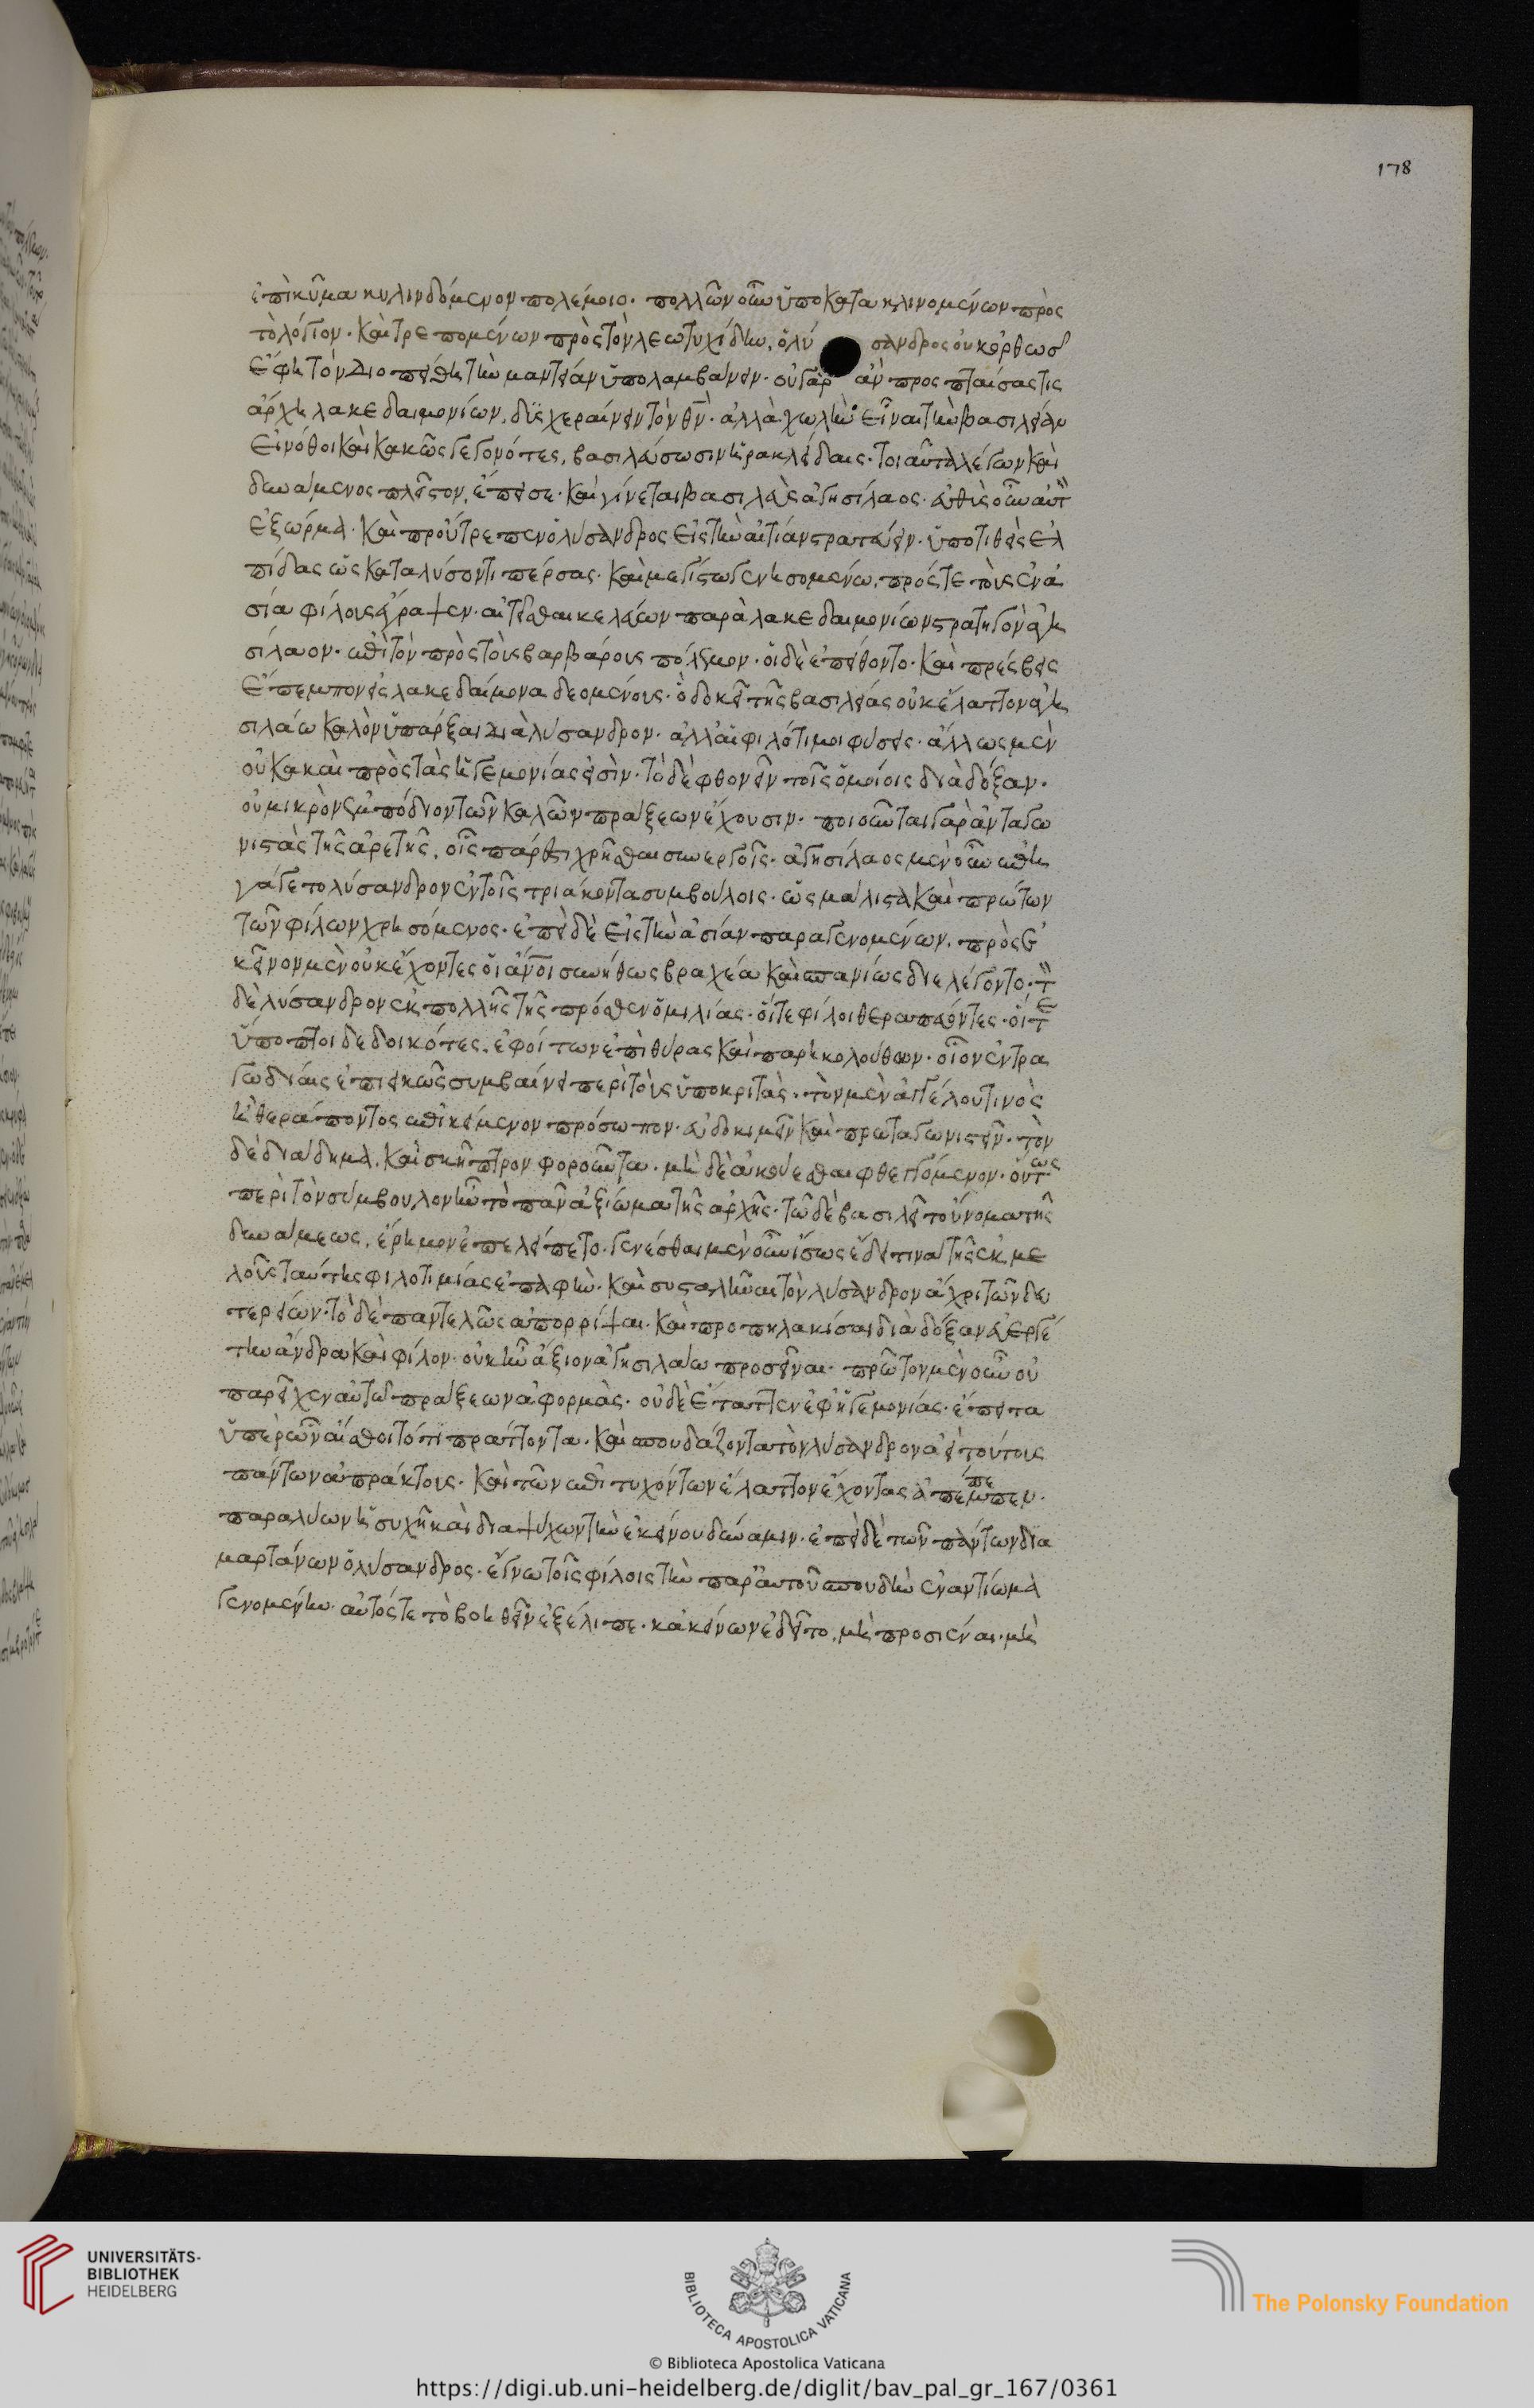 178
ἐπὶ κῦμα κυλινδόμενον πολέμοιο. πολλῶν οὖν ὑποκατακλινομένων πρὸς
τὸ λόγιον. καὶ τρεπομένων πρὸς τὸν λεωτυχίδην, ὁ λύσανδρος οὐκ ὀρθῶς
ἔφη τὸν διοπείθη τὴν μαντείαν ὑπολαμβάνειν. οὐ γὰρ ἂν προσπταίσας τις
ἄρχη λακεδαιμονίων, δυσχεραίνειν τὸν θν. ἀλλὰ χωλὴν εἶναι τὴν βασιλείαν
εἰ νόθοι καὶ κακῶς γεγονότες, βασιλεύσωσιν ἡρακλείδαις. τοιαῦτα λέγων καὶ
δυνάμενος πλεῖστον, ἔπεισε. καὶ γίνεται βασιλεὺς ἀγησίλαος. εὐθὺς οὖν αὐτὸν
ἐξώρμα. καὶ προὔτρεπεν ὁ λύσανδρος εἰς τὴν ἀσίαν στρατεύειν. ὑποτιθεὶς ἐλ
πίδας ὡς καταλύσοντι πέρσας. καὶ μεγίστω γενησομένω. πρός τε τοὺς ἐν ἀ
σία φίλους ἔγραψεν. αἰτεῖσθαι κελεύων παρὰ λακεδαιμονίων στρατηγὸν ἀγη
σίλαον. ἐπὶ τὸν πρὸς τοὺς βαρβάρους πόλεμον. οἱ δὲ ἐπείθοντο. καὶ πρέσβεις
ἔπεμπον εἰς λακεδαίμονα δεομένους. ὃ δοκεῖ τῆς βασιλείας οὐκ ἔλαττον ἀγη
σιλάω καλὸν ὑπάρξαι διὰ λύσανδρον. ἀλλ αἱ φιλότιμοι φύσεις. ἄλλως μὲν
οὐ κακαὶ πρὸς τὰς ἡγεμονίας εἰσὶν. τὸ δὲ φθονεῖν τοῖς ὁμοίοις διὰ δόξαν.
οὐ μικρὸν ἐμπόδιον τῶν καλῶν πράξεων ἔχουσιν. ποιοῦνται γὰρ ἀνταγω
νιστὰς τῆς ἀρετῆς, οἷς πάρεστι χρῆσθαι συνεργοῖς. ἀγησίλαος μὲν οὖν ἐπη
γάγετο λύσανδρον ἐν τοῖς τριάκοντα συμβούλοις. ὡς μάλιστα καὶ πρώτω
τῶν φίλων χρησόμενος. ἐπεὶ δὲ εἰς τὴν ἀσίαν παραγενομένων, πρὸς
κεῖνον μὲν οὐκ ἔχοντες οἱ ἄνοι συνήθως βραχέα καὶ σπανίως διελέγοντο. τὸν
δὲ λύσανδρον ἐκ πολλῆς τῆς πρόσθεν ὁμιλίας. οἵ τε φίλοι θεραπεύοντες. οἵ τε
ὕποπτοι δεδοικότες. ἐφοίτων ἐπὶ θύρας καὶ παρηκολούθουν. οἷον ἐν τρα
γωδίαις ἐπιεικῶς συμβαίνει περὶ τοὺς ὑποκριτὰς. τὸν μὲν ἀγγέλου τινὸς
ἢ θεράποντος ἐπικείμενον πρόσωπον. εὐδοκιμεῖν καὶ πρωταγωνιστεῖν. τὸν
δὲ διάδημα, καὶ σκῆπτρον φοροῦντα. μὴ δὲ ἀκούεσθαι φθεγγόμενον. οὕτως
περὶ τὸν σύμβουλον ἦν τὸ πᾶν ἀξίωμα τῆς ἀρχῆς. τῶ δὲ βασιλεῖ τοὔνομα τῆς
δυνάμεως, ἔρημον ἐπελείπετο. γενέσθαι μὲν οὖν ἴσως ἔδει τινὰ τῆς ἐκμε
λοῦς ταύτης φιλοτιμίας ἐπαφὴν. καὶ συσταλῆναι τὸν λύσανδρον ἄχρι τῶν δευ
τερείων. τὸ δὲ παντελῶς ἀπορρίψαι. καὶ προπηλακίσαι διὰ δόξαν εὐεργέ
την ἄνδρα καὶ φίλον. οὐκ ἦν ἄξιον ἀγησιλάω προσεῖναι. πρῶτον μὲν οὖν οὐ
παρεῖχεν αὐτῶ πράξεων ἀφορμὰς. οὐδὲ ἔταττεν ἐφ ἡγεμονίας. ἔπειτα
ὑπὲρ ὧν αἴσθοιτό τι πράττοντα. καὶ σπουδάζοντα τὸν λύσανδρον ἀεὶ τούτους
πάντων ἀπράκτους. καὶ τῶν ἐπιτυχόντων ἔλαττον ἔχοντας ἀπέπεμπεν.
παραλύων ἡσυχῆ καὶ διαψύχων τὴν ἐκείνου δύναμιν. ἐπεὶ δὲ τῶν πάντων δια
μαρτάνων ὁ λύσανδρος. ἔγνω τοῖς φίλοις τὴν παρ αὐτοῦ σπουδὴν ἐναντίωμα
γενομένην. αὐτός τε τὸ βοηθεῖν ἐξέλιπε. κἀκείνων ἐδεῖτο, μὴ προσιέναι. μὴ
UNIVERSITÄTS-
BIBLIOTHEK
HEIDELBERG
BIBLIOTECA APOSTOLICA VATICANA
The Polonsky Foundation
© Biblioteca Apostolica Vaticana
https://digi.ub.uni-heidelberg.de/diglit/bav_pal_gr_167/0361